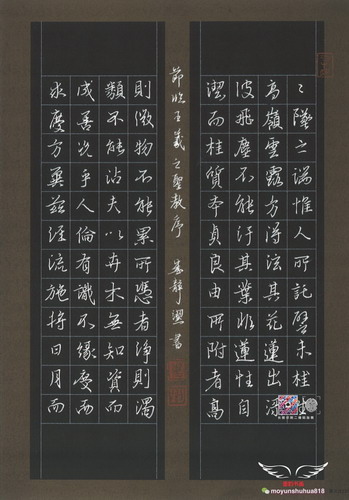 〻墜之端惟人所託譬夫桂生
高嶺雲露方得泫其花蓮出淥
波飛塵不能汙其業非蓮性自
潔而桂質本貞良由所附者高
節臨王羲之聖教序 書
則微物不能累所憑者淨則濁
類不能沾夫以卉木無知資而
成善況乎人倫有識不緣慶而
求慶方冀茲經流施將日月而
moyunshuhua818